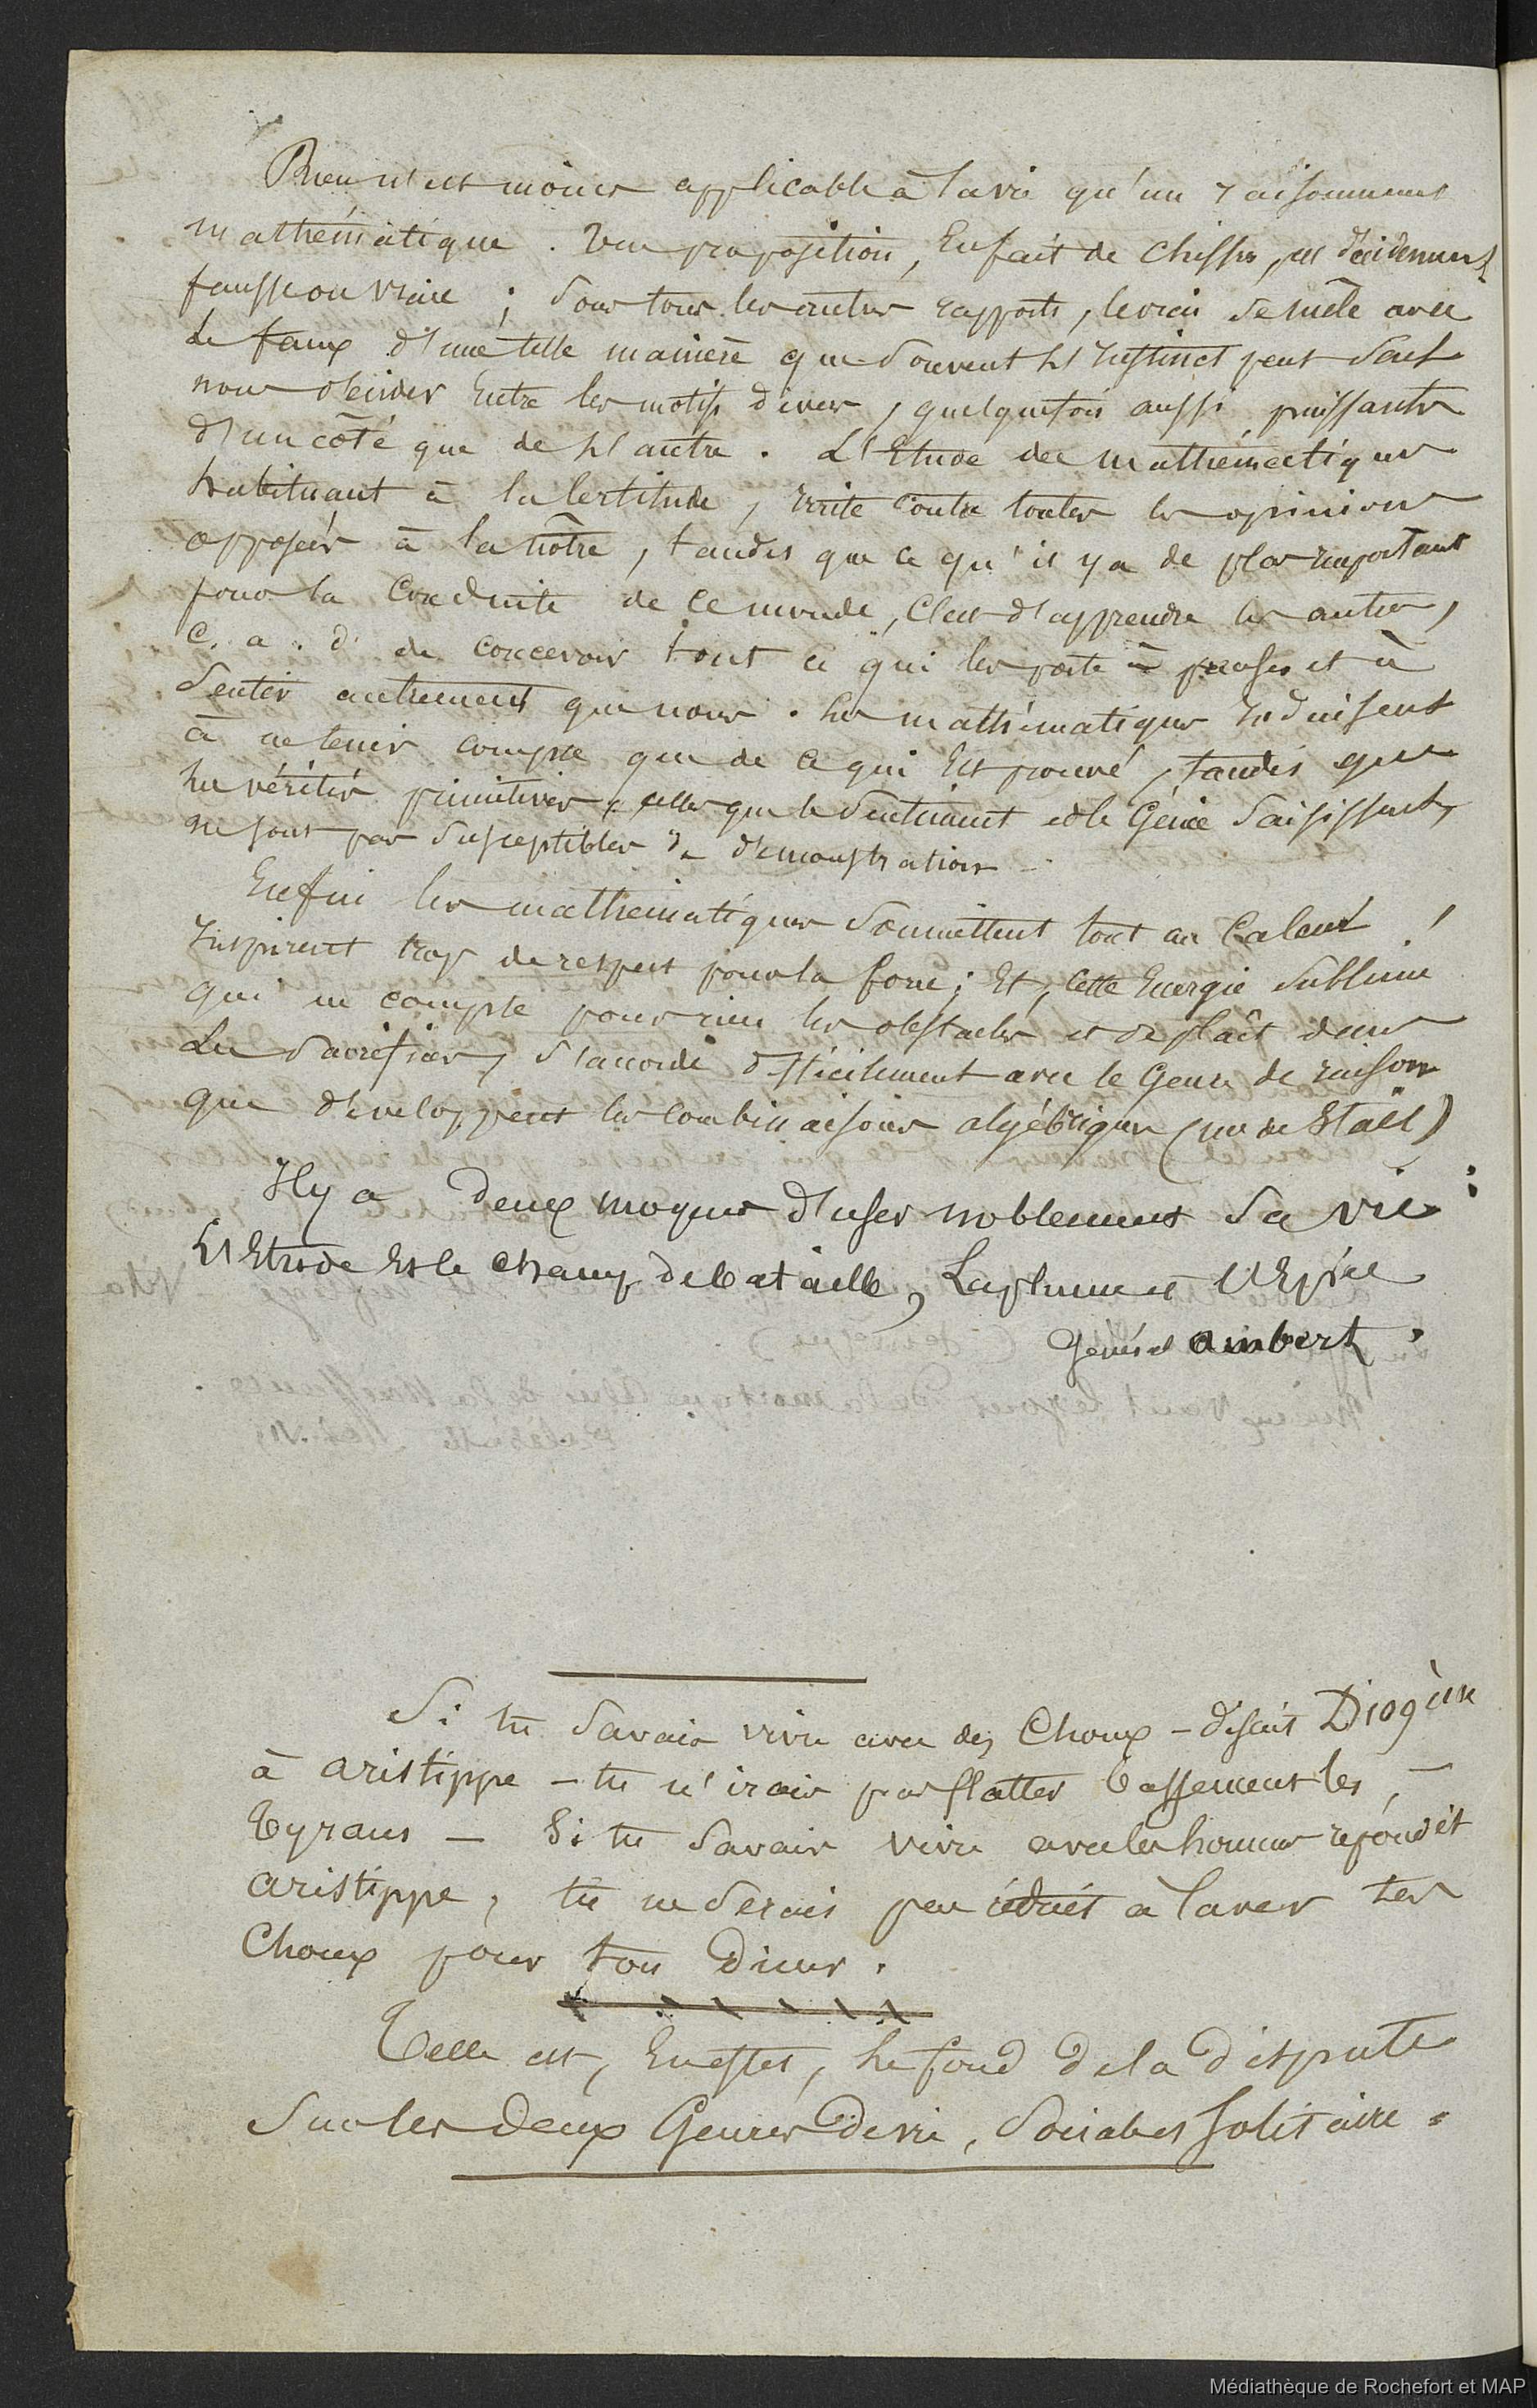 Rien n'est moins applicable à la vie qu'un raisonnement
mathématique. Une proposition, En fait de chiffres, est décidément
fausse ou vraie ; Sous tous les autres rapports, le vrai se mêle avec
le faux d'une telle manière que Souvent l'Instinct peut Seul
nous décider Entre les motifs divers, quelquefois aussi puissants
d'un côté que de l'autre. L'Etude des mathématiques
habituant à la Certitude, irrite contre toutes les opinions
opposées à la nôtre, tandis que ce qu'il y a de plus important
pour la Conduite de ce monde, C'est d'apprendre les autres,
C. a. d. de concevoir tout ce qui les porte à penser et à
Sentir autrement que nous. Les mathématiques Induisent
à ne tenir compte que de ce qui Est prouvé, tandis que
les vérités primitives, celles que le Sentiment et le Génie Saisissent,
ne sont pas Susceptibles de démonstration.
Enfin les mathématiques Soumettent tout au Calcul,
Inspirent trop de respect pour la force ; Et, Cette Energie Sublime
qui ne compte pour rien les obstacles et se plaît dans
les Sacrifices, S'accorde difficilement avec le Genre de raison
que développent les combinaisons algébriques (me de Staël)
Il y a deux moyens d'user noblement Sa vie :
L'Etude Et le champ de bataille, La plume et l'Epée
Général ambert.
Si tu Savais vivre avec des Choux - disait Diogène
à aristippe - tu n'irais pas flatter bassement les -
Tyrans - Si tu Savais vivre avec les hommes répondit
aristippe, tu ne Serais pas réduit à laver tes
Choux pour ton Dîner.
Telle est, En effet, le fond de la dispute
Sur les deux Genres de vie, Sociale et Solitaire.
Médiathèque de Rochefort et MAP